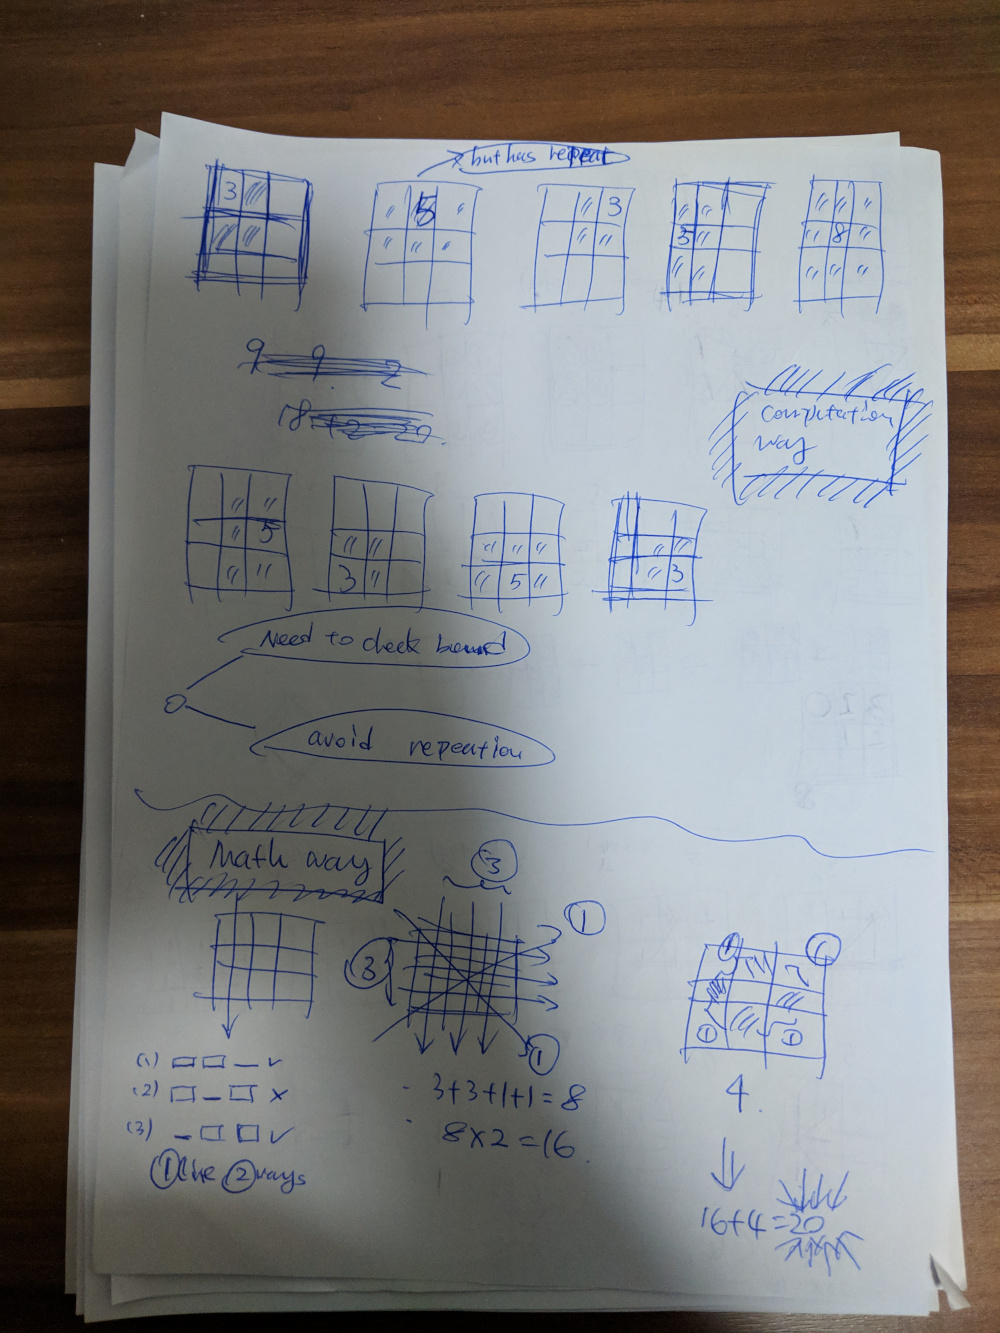 but has repeat
3
5
3
5
8
9 9 2
18 +2 20
Computation
way
5
3
5
3
Need to check bound
avoid repeation
Math way
3
1
3
1
1
1
1
1
(1) ✓
(2) ×
(3) ✓
1 line 2 ways
3+3+1+1=8
8×2=16
4.
16+4=20